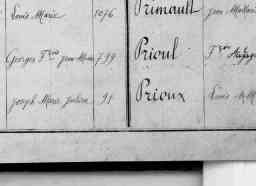 Louis Marie 1076 Primault Jean
Georges Fçois Jean Marie 799 Prioul Fçois
Joseph Marie Julien 91 Prioux Louis